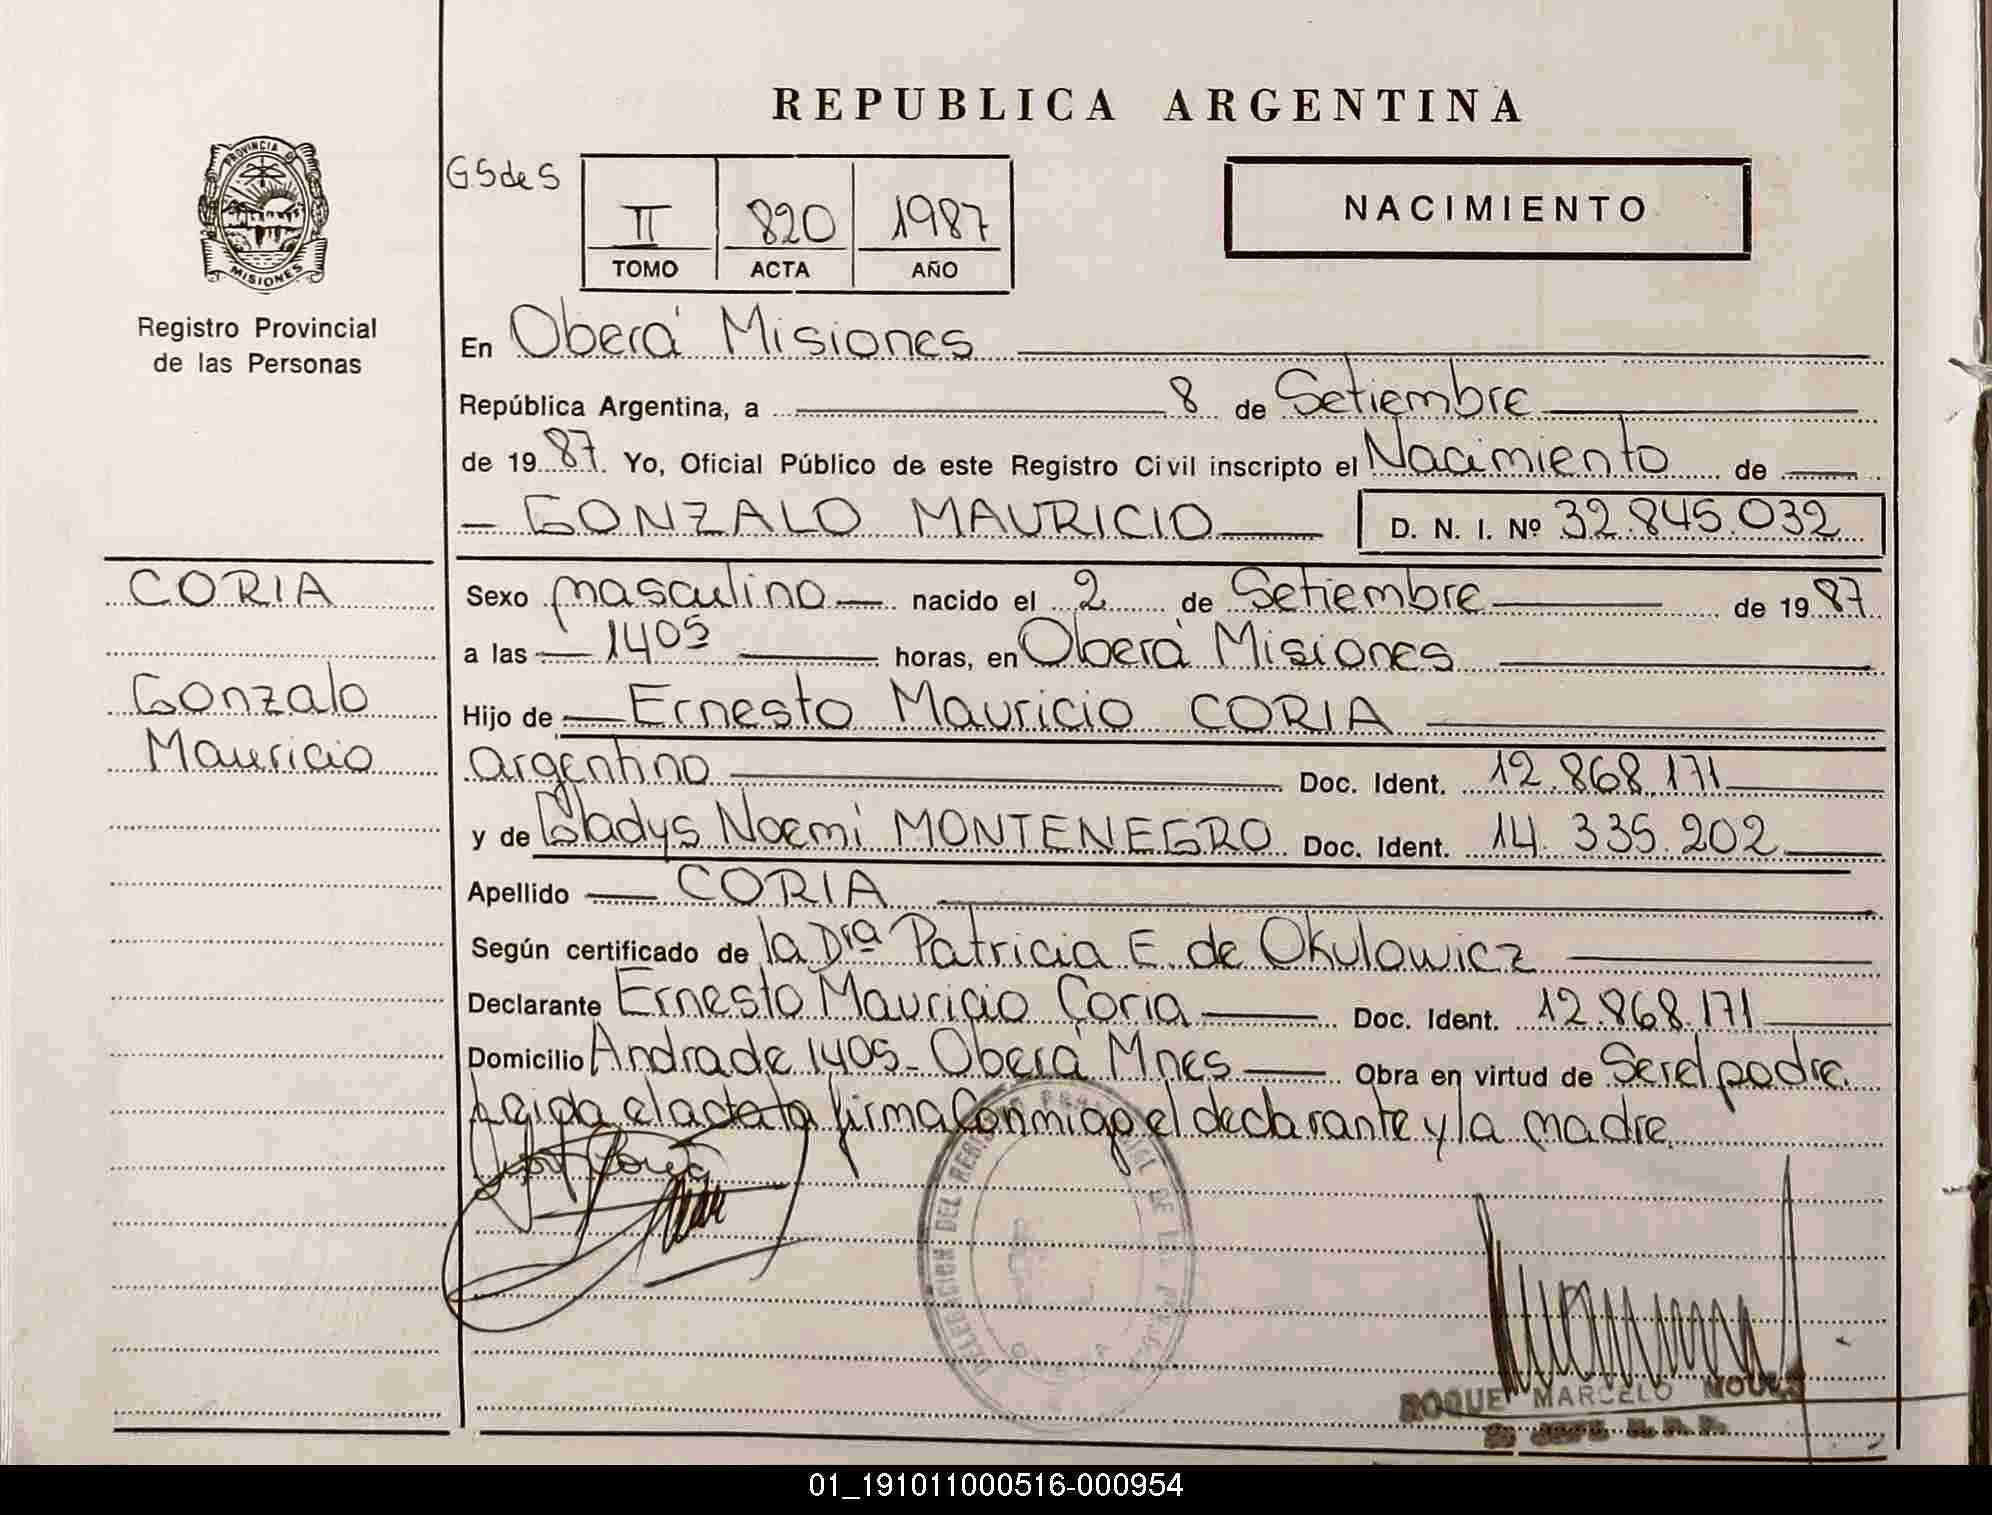 REPUBLICA ARGENTINA
PROVINCIA D
MISIONES
Registro Provincial
de las Personas
GSdeS
II 820 1987
TOMO ACTA AÑO
NACIMIENTO
En Oberá Misiones
República Argentina, a 8 de Setiembre
de 1987. Yo, Oficial Público de este Registro Civil inscripto el Nacimiento de
GONZALO MAURICIO D. N. I. Nº 32.845.032
CORIA
Gonzalo
Mauricio
Sexo masculino nacido el 2 de Setiembre de 1987
a las 1405 horas, en Oberá Misiones
Hijo de Ernesto Mauricio CORIA
argentino Doc. Ident. 12.868.171
y de Gladys Noemí MONTENEGRO Doc. Ident. 14.335.202
Apellido CORIA
Según certificado de la Dra Patricia E. de Okulowicz
Declarante Ernesto Mauricio Coria Doc. Ident. 12.868.171
Domicilio Andrade 1405- Oberá Mnes Obra en virtud de Ser el padre.
Leida el acta la firma Conmigo el declarante y la madre.
DELEGACION DEL REGIS
ROQUE MARCELO
01_191011000516-000954